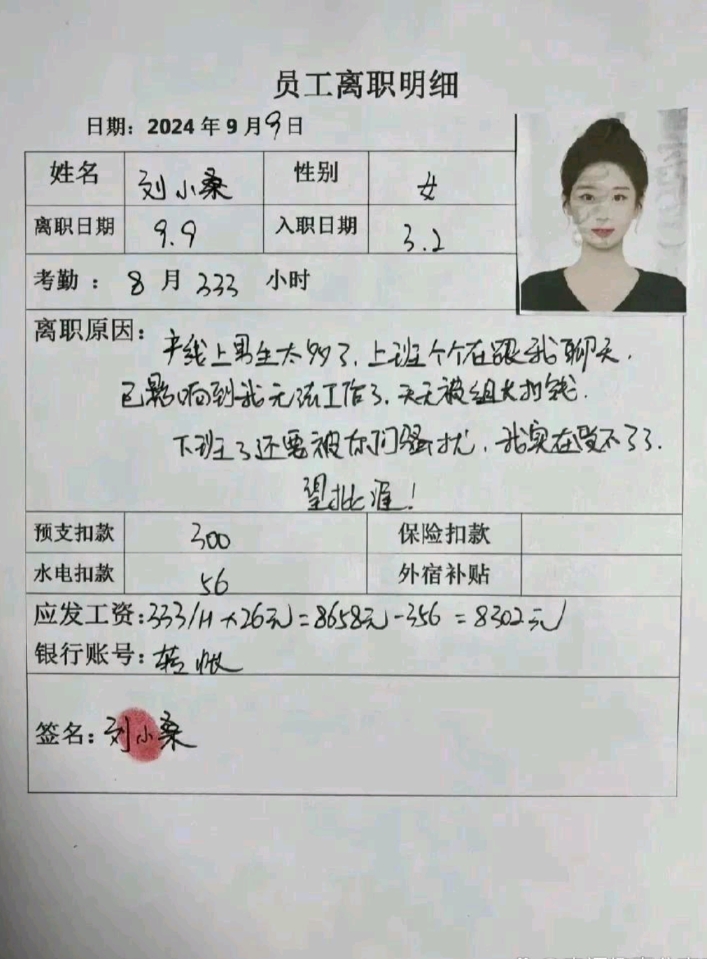 员工离职明细
日期：2024年9月9日
姓名 刘小桑 性别 女
离职日期 9.9 入职日期 3.2
考勤：8月333小时
离职原因：产线上男生太多了，上班个个在跟我聊天，
已影响到我无法工作了，天天被组长扣钱.
下班了还要被你们骚扰，我实在受不了了.
望批准！
预支扣款 300 保险扣款
水电扣款 56 外宿补贴
应发工资：333/H×26元=8658元-356=8302元
银行账号：转帐
签名：刘小桑